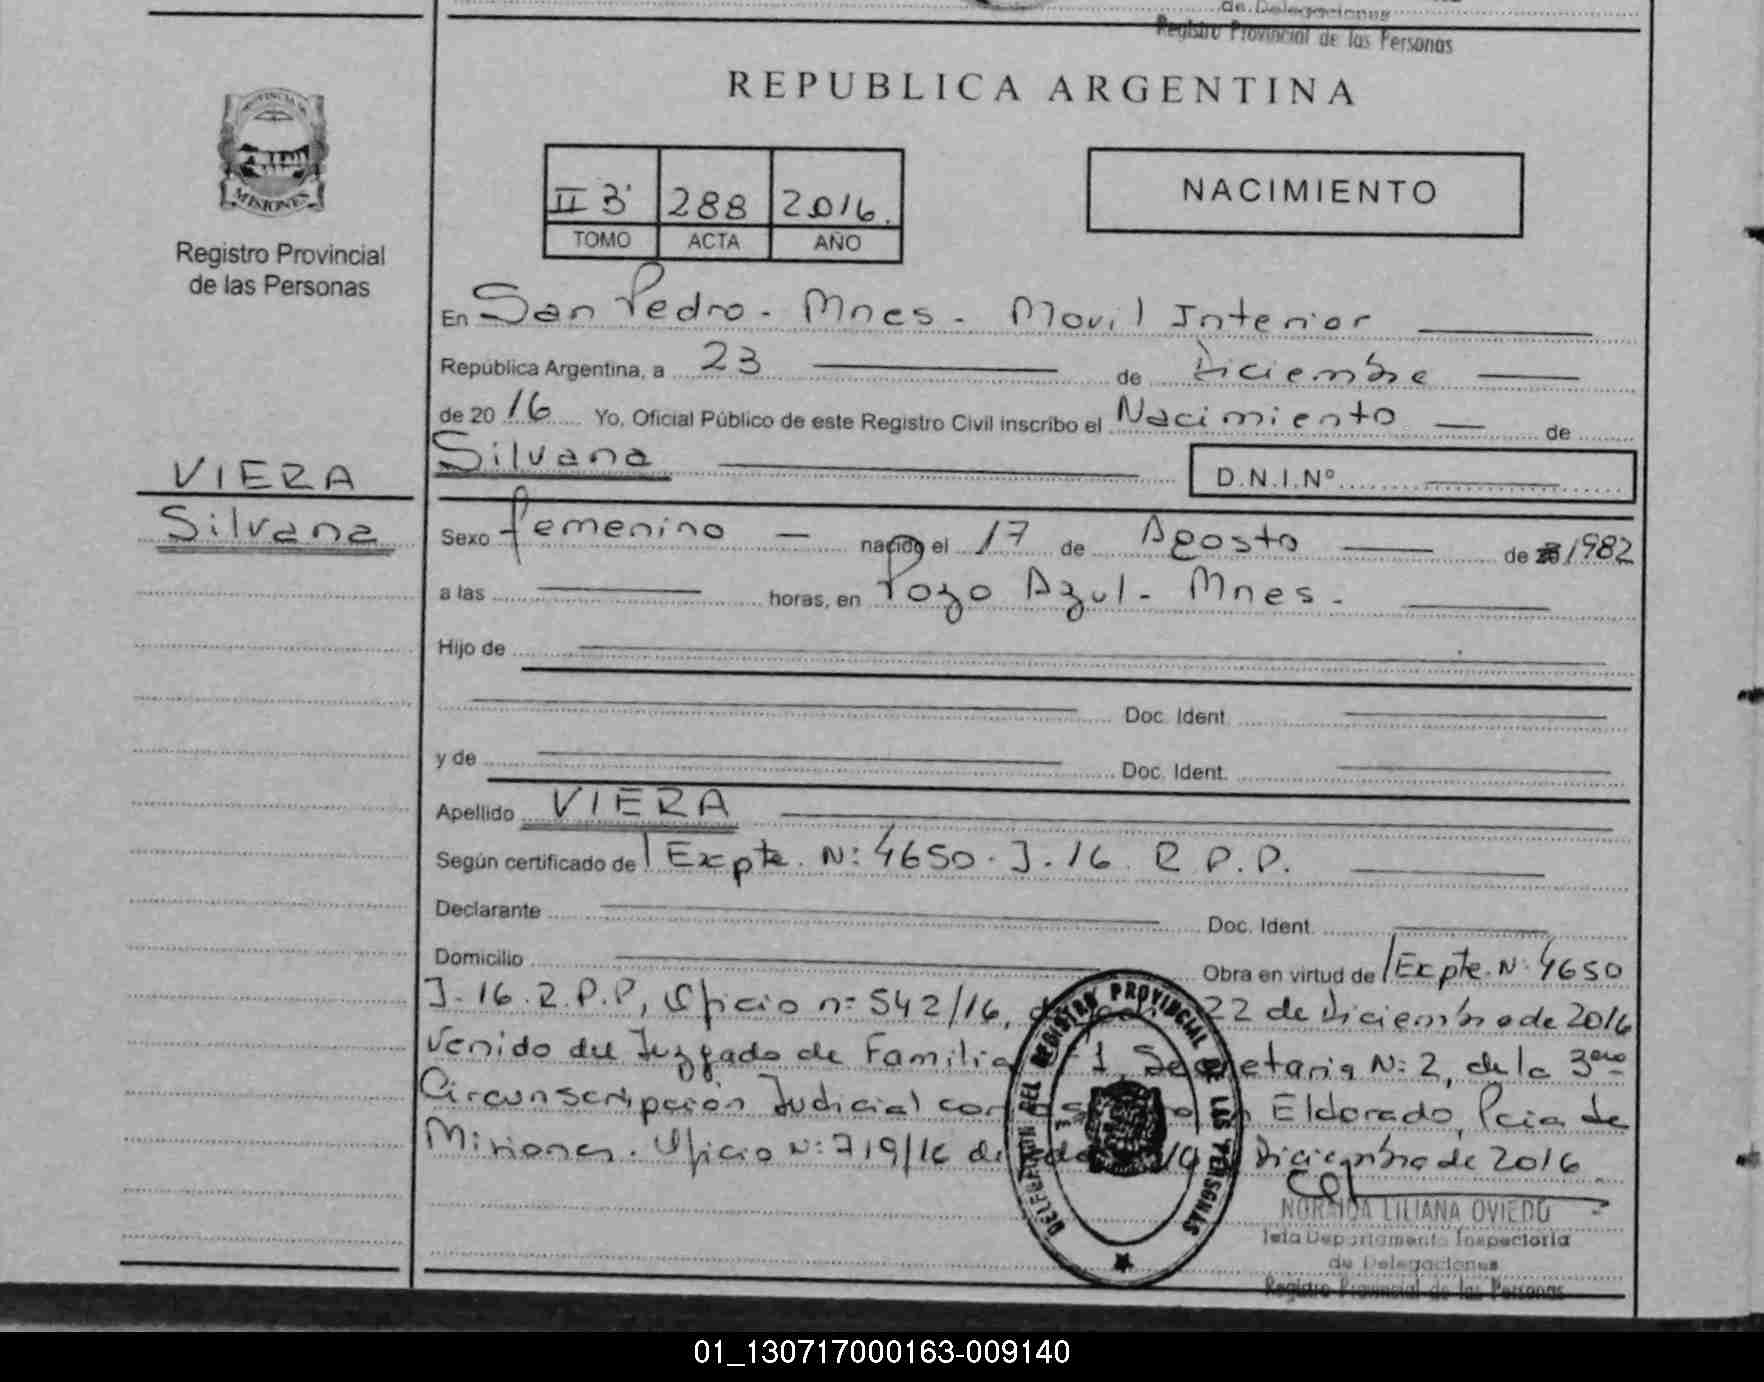 de Delegaciones
Registro Provincial de las Personas
REPUBLICA ARGENTINA
PROVINCIA DE
MISIONES
Registro Provincial
de las Personas
II 3' 288 2016.
TOMO ACTA AÑO
NACIMIENTO
En San Pedro - Mnes - Movil Interior
República Argentina, a 23 de Diciembre
de 20 16 Yo, Oficial Público de este Registro Civil inscribo el Nacimiento de
Silvana D.N.I.Nº
VIERA
Silvana
Sexo femenino nacido el 17 de Agosto de 1982
a las horas, en Pozo Azul - Mnes -
Hijo de
Doc. Ident.
y de Doc. Ident.
Apellido VIERA
Según certificado de Expte. N: 4650 - J - 16 R.P.P.
Declarante Doc. Ident.
Domicilio Obra en virtud de Expte. N: 4650
J - 16. R.P.P, Oficio n: 542/16, 22 de Diciembre de 2016
venido del Juzgado de Familia 1, Secretaria N: 2, de la 3era
Circunscripción Judicial con Eldorado, Pcia de
Misiones. Oficio N: 719/16 de Diciembre de 2016
DELEGACION DEL REGISTRO PROVINCIAL DE LAS PERSONAS
NORAIDA LILIANA OVIEDO
Jefa Departamento Inspectoria
de Delegaciones
Registro Provincial de las Personas
01_130717000163-009140